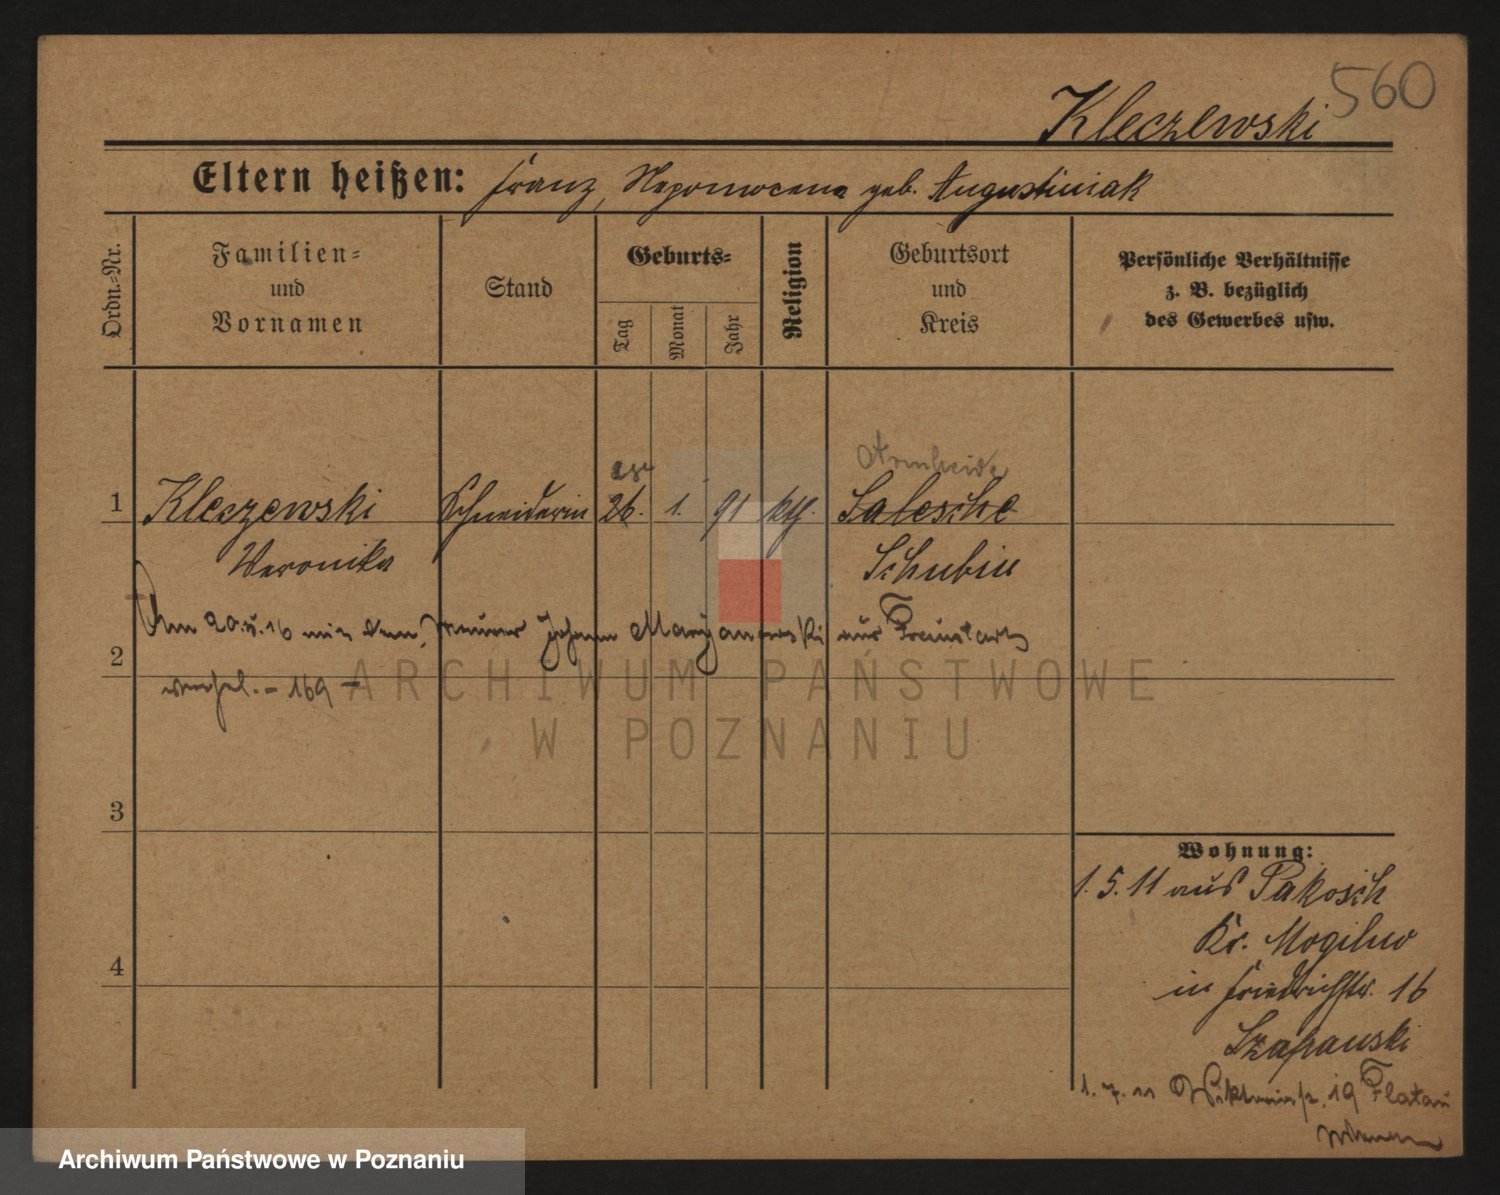 560
Kleczewski
Eltern heißen: Franz, Nepomocena geb. Augustiniak
Ordn.-Nr.
Familien-
und
Vornamen
Stand
Geburts-
Tag
Monat
Jahr
Religion
Geburtsort
und
Kreis
Persönliche Verhältnisse
z. B. bezüglich
des Gewerbes usw.
Armheide
1 Kleczewski Schneiderin 26. 1. 91 kth. Salesche
Veronika Schubin
Am 20. 16 mit dem Johann Maryanowski aus
2
verehel. - 169 -
ARCHIWUM PAŃSTWOWE
W POZNANIU
3
4
Wohnung:
1.5.11 aus Pakosch
Kr. Mogilno
in Friedrichstr. 16
Szafranski
1. 7. 11 19 Flatau
Archiwum Państwowe w Poznaniu